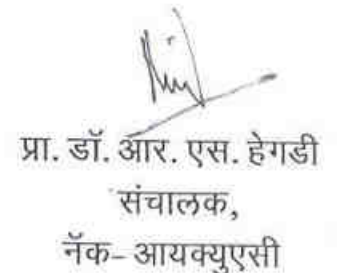 प्रा. डॉ. आर. एस. हेगडी
संचालक,
नॅक- आयक्युएसी